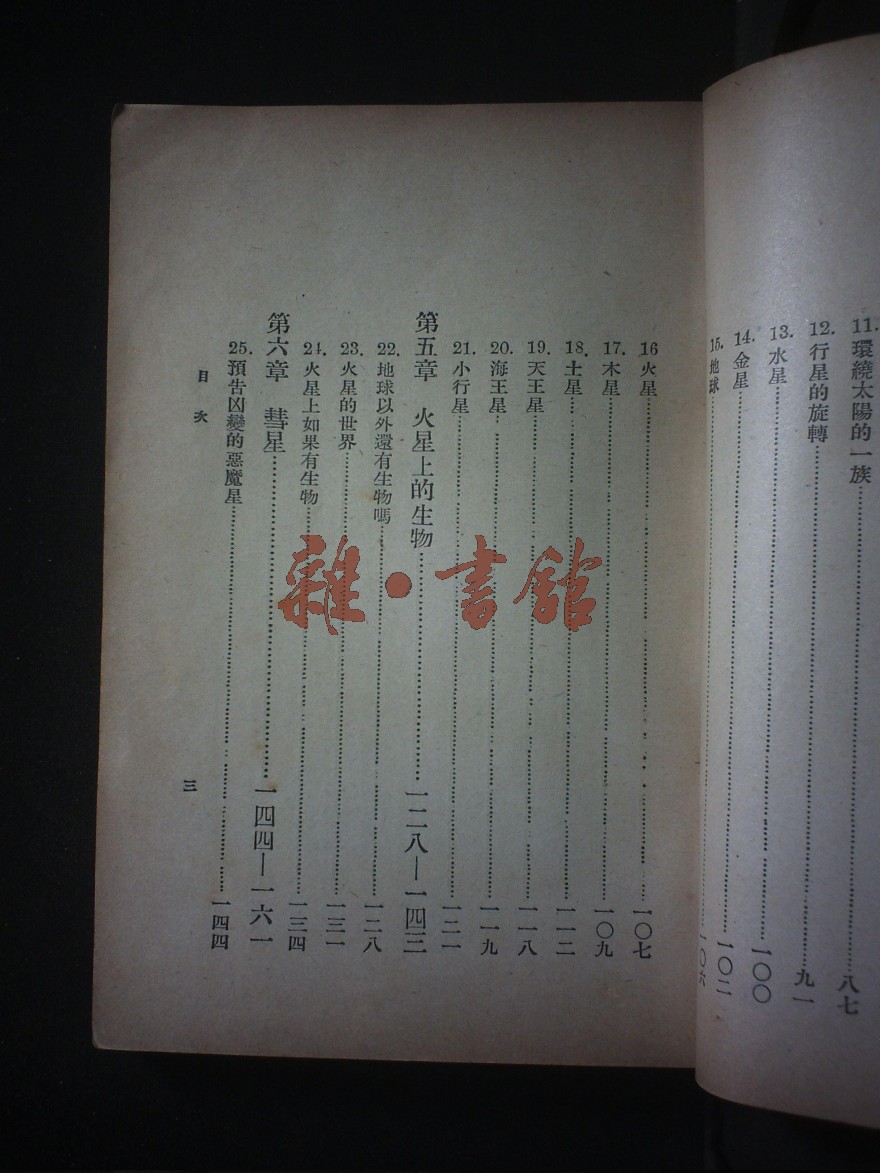 11. 環繞太陽的一族……八七
12. 行星的旋轉……九一
13. 水星……一〇〇
14. 金星……一〇二
15. 地球……一〇六
16 火星……一〇七
17. 木星……一〇九
18. 土星……一一二
19. 天王星……一一八
20. 海王星……一一九
21. 小行星……一二一
第五章 火星上的生物……一二八—一四三
22. 地球以外還有生物嗎……一二八
23. 火星的世界……一三一
24. 火星上如果有生物……一三四
第六章 彗星……一四四—一六一
25. 預告凶變的惡魔星……一四四
目次
三
雜·書館